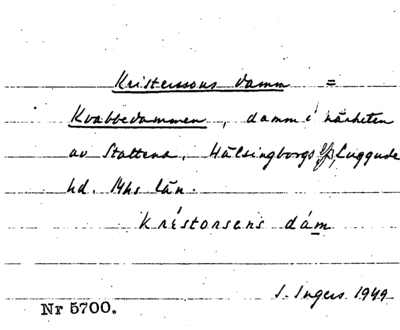 Kristerssons damm =
Kvabbedammen, damm i närheten
av Stattena, Hälsingborgs Luggude
hd. Mhs län.
Kréstorsens dám
I. Ingers 1949
Nr 5700.